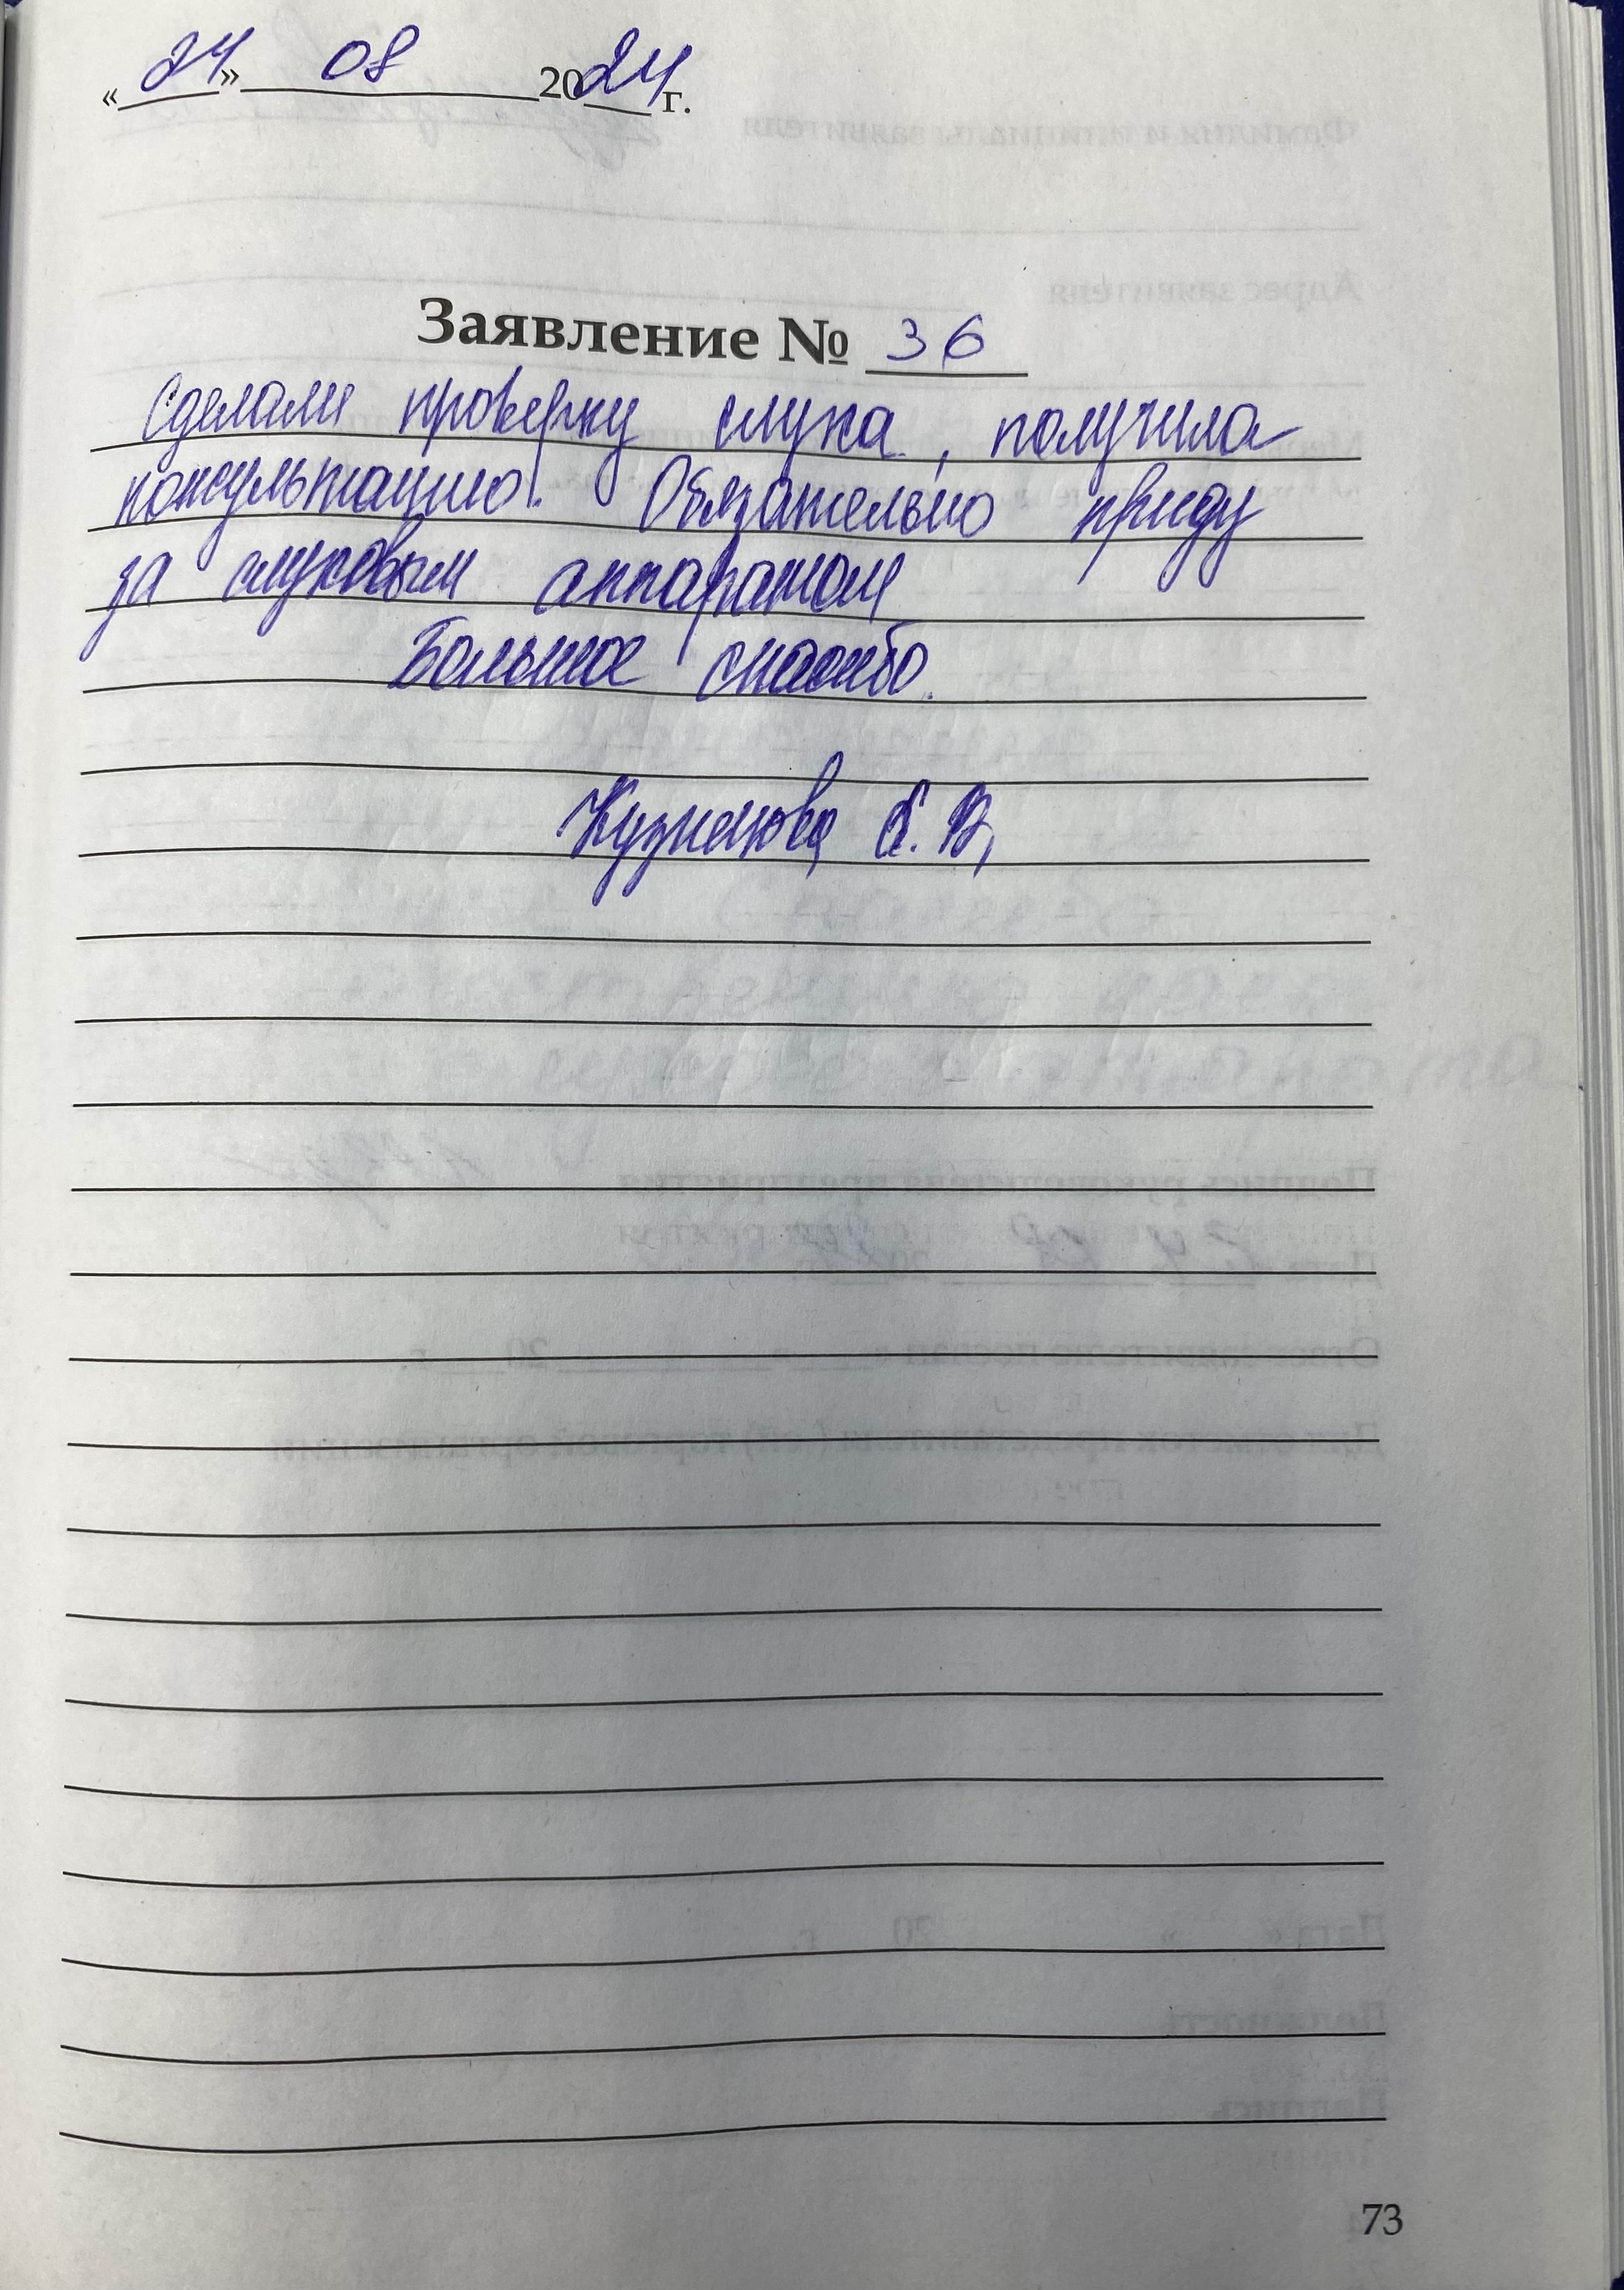 «24» 08 2024 г.
Заявление № 36
Сделали проверку слуха, получила
консультацию. Обязательно приду
за слуховым аппаратом
Большое спасибо.
Кузнецова
73